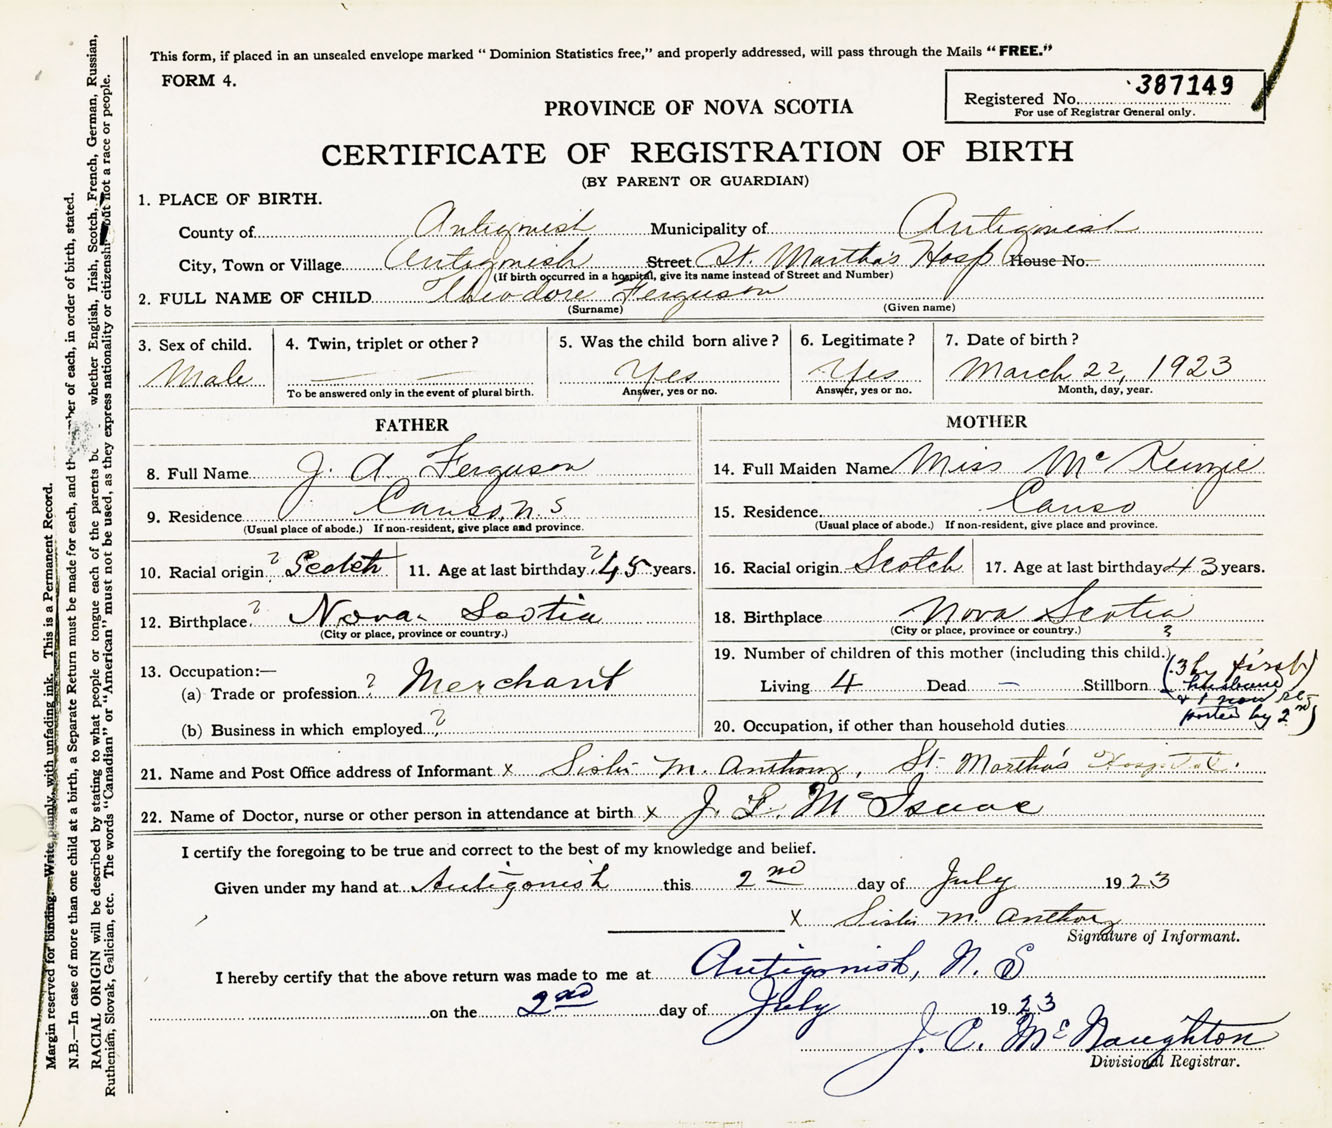 This form, if placed in an unsealed envelope marked “ Dominion Statistics free,” and properly addressed, will pass through the Mails “ FREE.”
FORM 4.
Registered No. 387149
For use of Registrar General only.
PROVINCE OF NOVA SCOTIA
CERTIFICATE OF REGISTRATION OF BIRTH
(BY PARENT OR GUARDIAN)
1. PLACE OF BIRTH.
County of Antigonish Municipality of Antigonish
City, Town or Village Antigonish Street St. Martha's Hosp House No.
(If birth occurred in a hospital, give its name instead of Street and Number)
2. FULL NAME OF CHILD Theodore Ferguson
(Surname) (Given name)
3. Sex of child. 4. Twin, triplet or other ? 5. Was the child born alive ? 6. Legitimate ? 7. Date of birth ?
Male — — Yes Yes March 22, 1923
To be answered only in the event of plural birth. Answer, yes or no. Answer, yes or no. Month, day, year.
FATHER
8. Full Name J. A Ferguson
9. Residence Canso, N. S
(Usual place of abode.) If non-resident, give place and province.
10. Racial origin ? Scotch 11. Age at last birthday ? 45 years.
12. Birthplace ? Nova Scotia
(City or place, province or country.)
13. Occupation:—
(a) Trade or profession ? Merchant
(b) Business in which employed ?
MOTHER
14. Full Maiden Name Miss Mc Kenzie
15. Residence. Canso
(Usual place of abode.) If non-resident, give place and province.
16. Racial origin Scotch 17. Age at last birthday 43 years.
18. Birthplace Nova Scotia
(City or place, province or country.) ?
19. Number of children of this mother (including this child.)
Living 4 Dead — Stillborn
(3 by first
husband)
& 1 now re-
ported by 2nd)
20. Occupation, if other than household duties
21. Name and Post Office address of Informant x Sister M. Anthony, St. Martha's Hospital.
22. Name of Doctor, nurse or other person in attendance at birth x J. L. McIsaac
I certify the foregoing to be true and correct to the best of my knowledge and belief.
Given under my hand at Antigonish this 2nd day of July 1923
x Sister M. Anthony
Signature of Informant.
I hereby certify that the above return was made to me at Antigonish, N. S
on the 2nd day of July 1923
J. C. McNaughton
Divisional Registrar.
Margin reserved for binding. Write plainly with unfading ink. This is a Permanent Record.
N.B.—In case of more than one child at a birth, a Separate Return must be made for each, and the number of each, in order of birth, stated.
RACIAL ORIGIN will be described by stating to what people or tongue each of the parents be whether English, Irish, Scotch, French, German, Russian,
Ruthenian, Slovak, Galician, etc. The words “Canadian” or “American” must not be used, as they express nationality or citizenship but not a race or people.